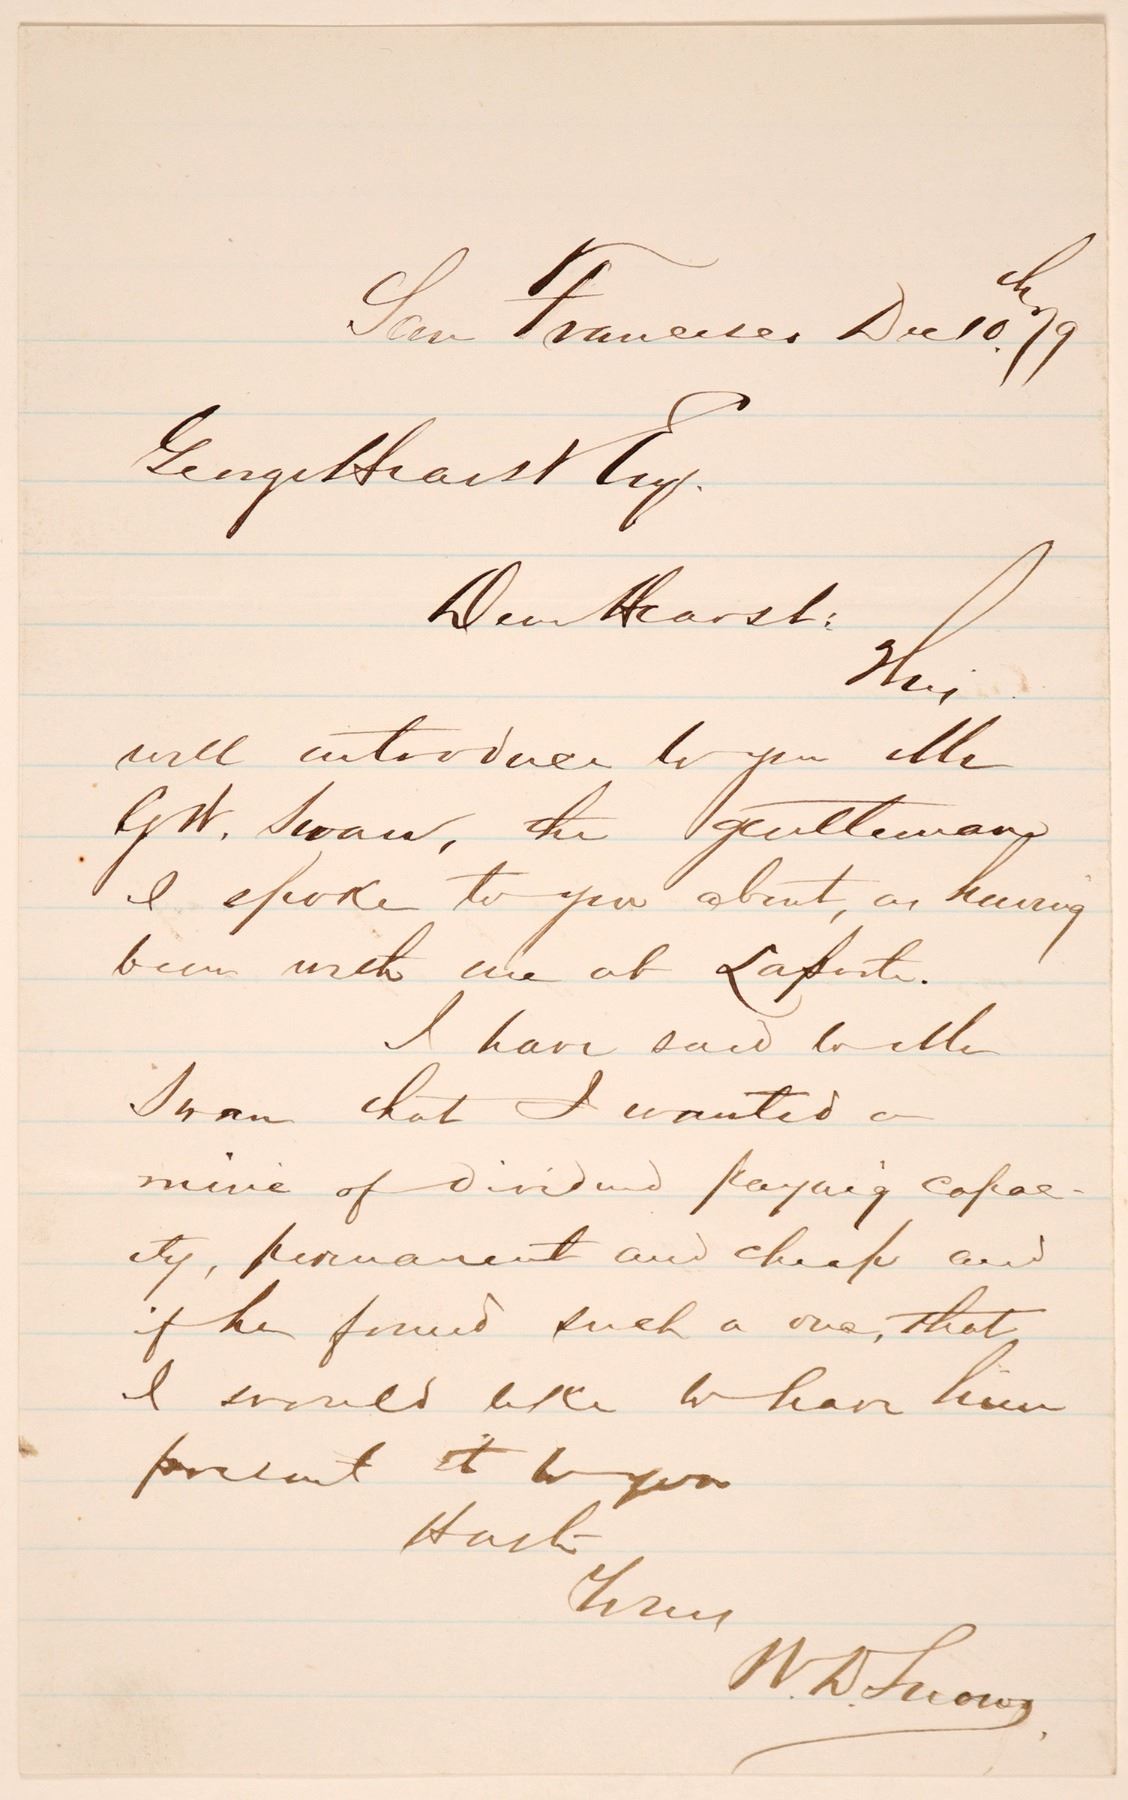 San Francisco Dec 10th 79
George Hearst Esq.
Dear Hearst:
This
will introduce to you Mr
G W. Swan, the gentleman
I spoke to you about, as having
been with me at Laporte.
I have said to Mr
Swan that I wanted a
mine of dividend paying capac-
ity, permanent and cheap and
if he found such a one, that
I would like to have him
present it to you
Hastily
Yours
W. D. Snow